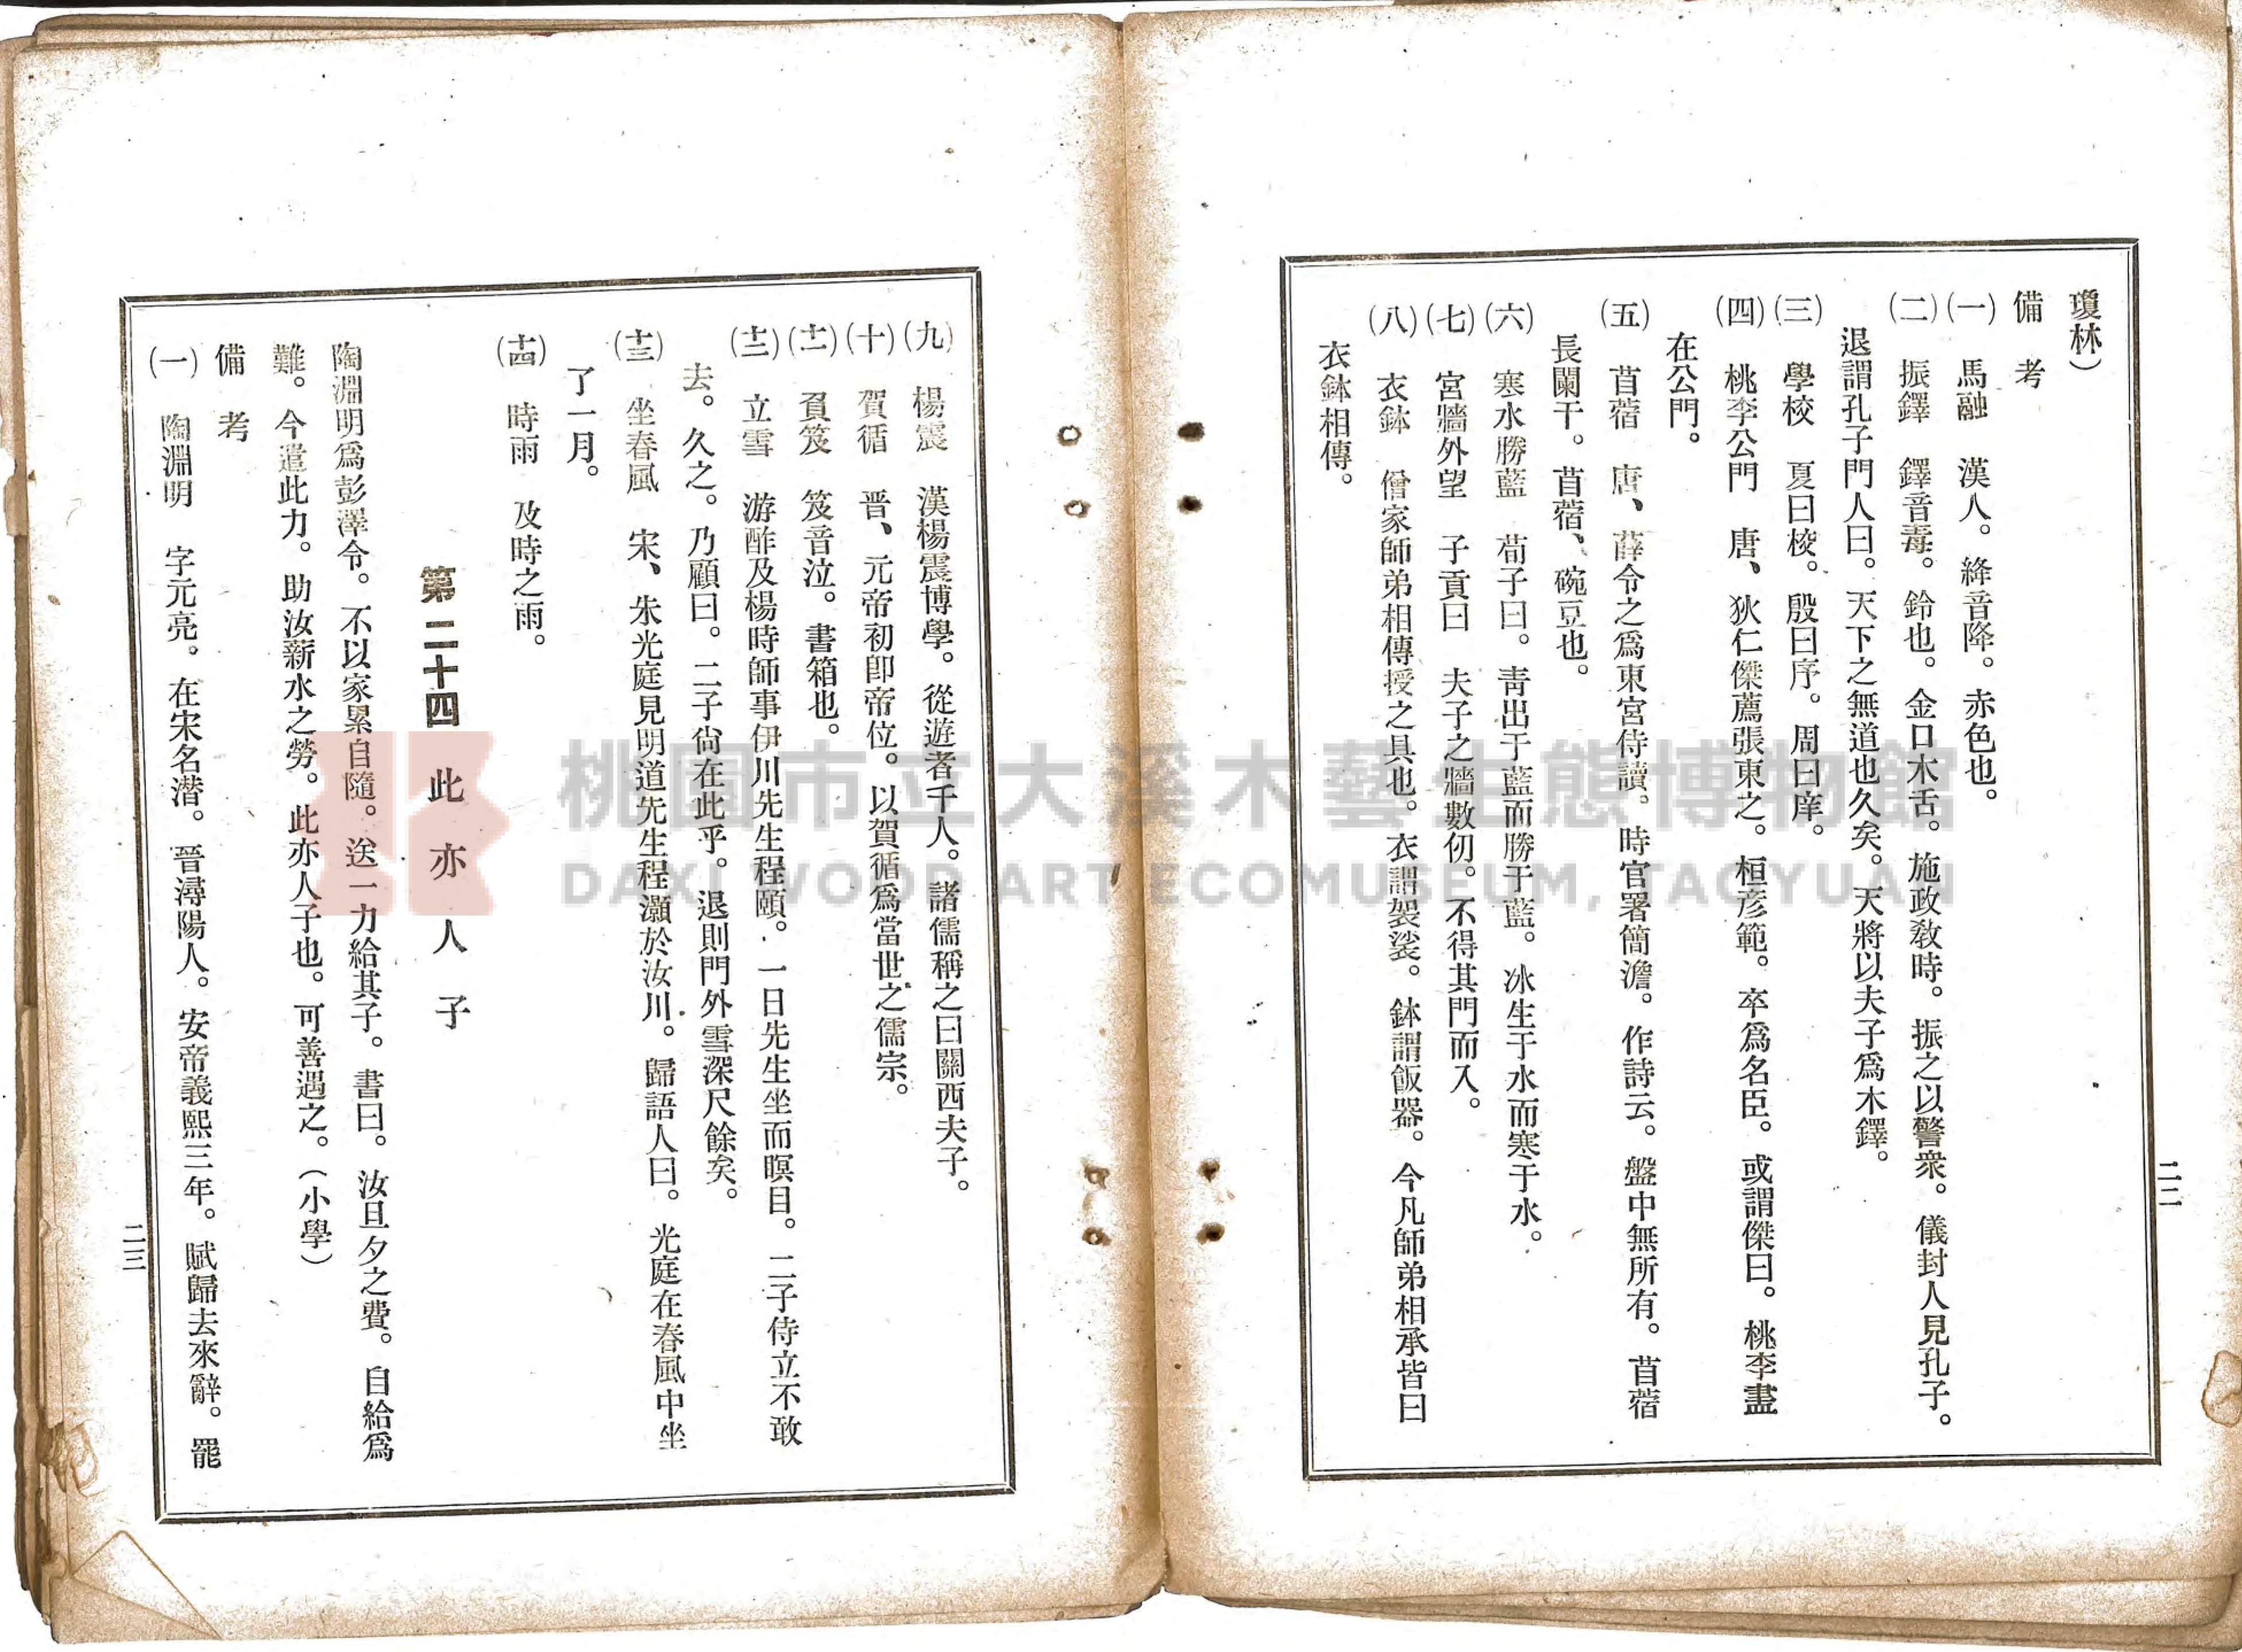 瓊林）
備　考
（一）　馬融　漢人。絳音降。赤色也。
（二）　振鐸　鐸音毒。鈴也。金口木舌。施政敎時。振之以警衆。儀封人見孔子。
退謂孔子門人曰。天下之無道也久矣。天將以夫子爲木鐸。
（三）　學校　夏曰校。殷曰序。周曰庠。
（四）　桃李公門　唐、狄仁傑薦張東之。桓彥範。卒爲名臣。或謂傑曰。桃李盡
在公門。
（五）　苜蓿　唐、薛令之爲東宮侍讀。時官署簡澹。作詩云。盤中無所有。苜蓿
長闌干。苜蓿、碗豆也。
（六）　寒水勝藍　荀子曰。靑出于藍而勝于藍。冰生于水而寒于水。
（七）　宮牆外望　子貢曰　夫子之牆數仞。不得其門而入。
（八）　衣鉢　僧家師弟相傳授之具也。衣謂袈裟。鉢謂飯器。今凡師弟相承皆曰
衣鉢相傳。
二二
（九）　楊震　漢楊震博學。從遊者千人。諸儒稱之曰關西夫子。
（十）　賀循　晋、元帝初卽帝位。以賀循爲當世之儒宗。
（十一）　負笈　笈音泣。書箱也。
（十二）　立雪　游酢及楊時師事伊川先生程頤。一日先生坐而瞑目。二子侍立不敢
去。久之。乃顧曰。二子尙在此乎。退則門外雪深尺餘矣。
（十三）　坐春風　宋、朱光庭見明道先生程灝於汝川。歸語人曰。光庭在春風中坐
了一月。
（十四）　時雨　及時之雨。
第二十四　此亦人子
陶淵明爲彭澤令。不以家累自隨。送一力給其子。書曰。汝旦夕之費。自給爲
難。今遣此力。助汝薪水之勞。此亦人子也。可善遇之。（小學）
備　考
（一）　陶淵明　字元亮。在宋名潛。晉潯陽人。安帝義熙三年。賦歸去來辭。罷
二三
桃園市立大溪木藝生態博物館
DAXI WOOD ART ECOMUSEUM, TAOYUAN